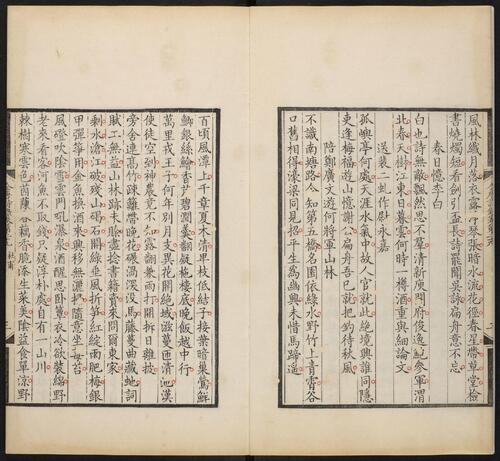 風林纖月落衣露淨琴張暗水流花徑春星帶草堂檢
書燒燭短看劍引盃長詩罷聞吳詠扁舟意不忘
春日憶李白
白也詩無敵飄然思不羣清新庾開府俊逸鮑參軍渭
北春天樹江東日暮雲何時一樽酒重與細論文
送裴二虬作尉永嘉
孤嶼亭何處天涯水氣中故人官就此絕境與誰同隱
吏逢梅福遊山憶謝公扁舟吾已就把釣待秋風
陪鄭廣文遊何將軍山林
不識南塘路今知第五橋名園依綠水野竹上青霄谷
口舊相得濠梁同見招平生爲幽興未惜馬蹄遙
百頃風潭上千章夏木清卑枝低結子接葉暗巢鶯鮮
鯽銀絲鱠香芹碧澗羹翻疑柂樓底晚飯越中行
萬里戎王子何年別月支異花開絕域滋蔓匝清池漢
使徒空到神農竟不知露翻兼雨打開拆日離披
旁舍連高竹疎籬帶晚花碾渦深沒馬藤蔓曲藏蛇詞
賦工無益山林跡未賒盡捻書籍賣來問爾東家
剩水滄江破殘山碣石開綠垂風折笋紅綻雨肥梅銀
甲彈箏用金魚換酒來興移無灑掃隨意坐莓苔
風磴吹陰雪雲門吼瀑泉酒醒思臥簟衣冷欲裝綿野
老來看客河魚不取錢只疑淳朴處自有一山川
棘樹寒雲色茵蔯春藕香脆添生菜美陰益食單涼野
杜甫
三